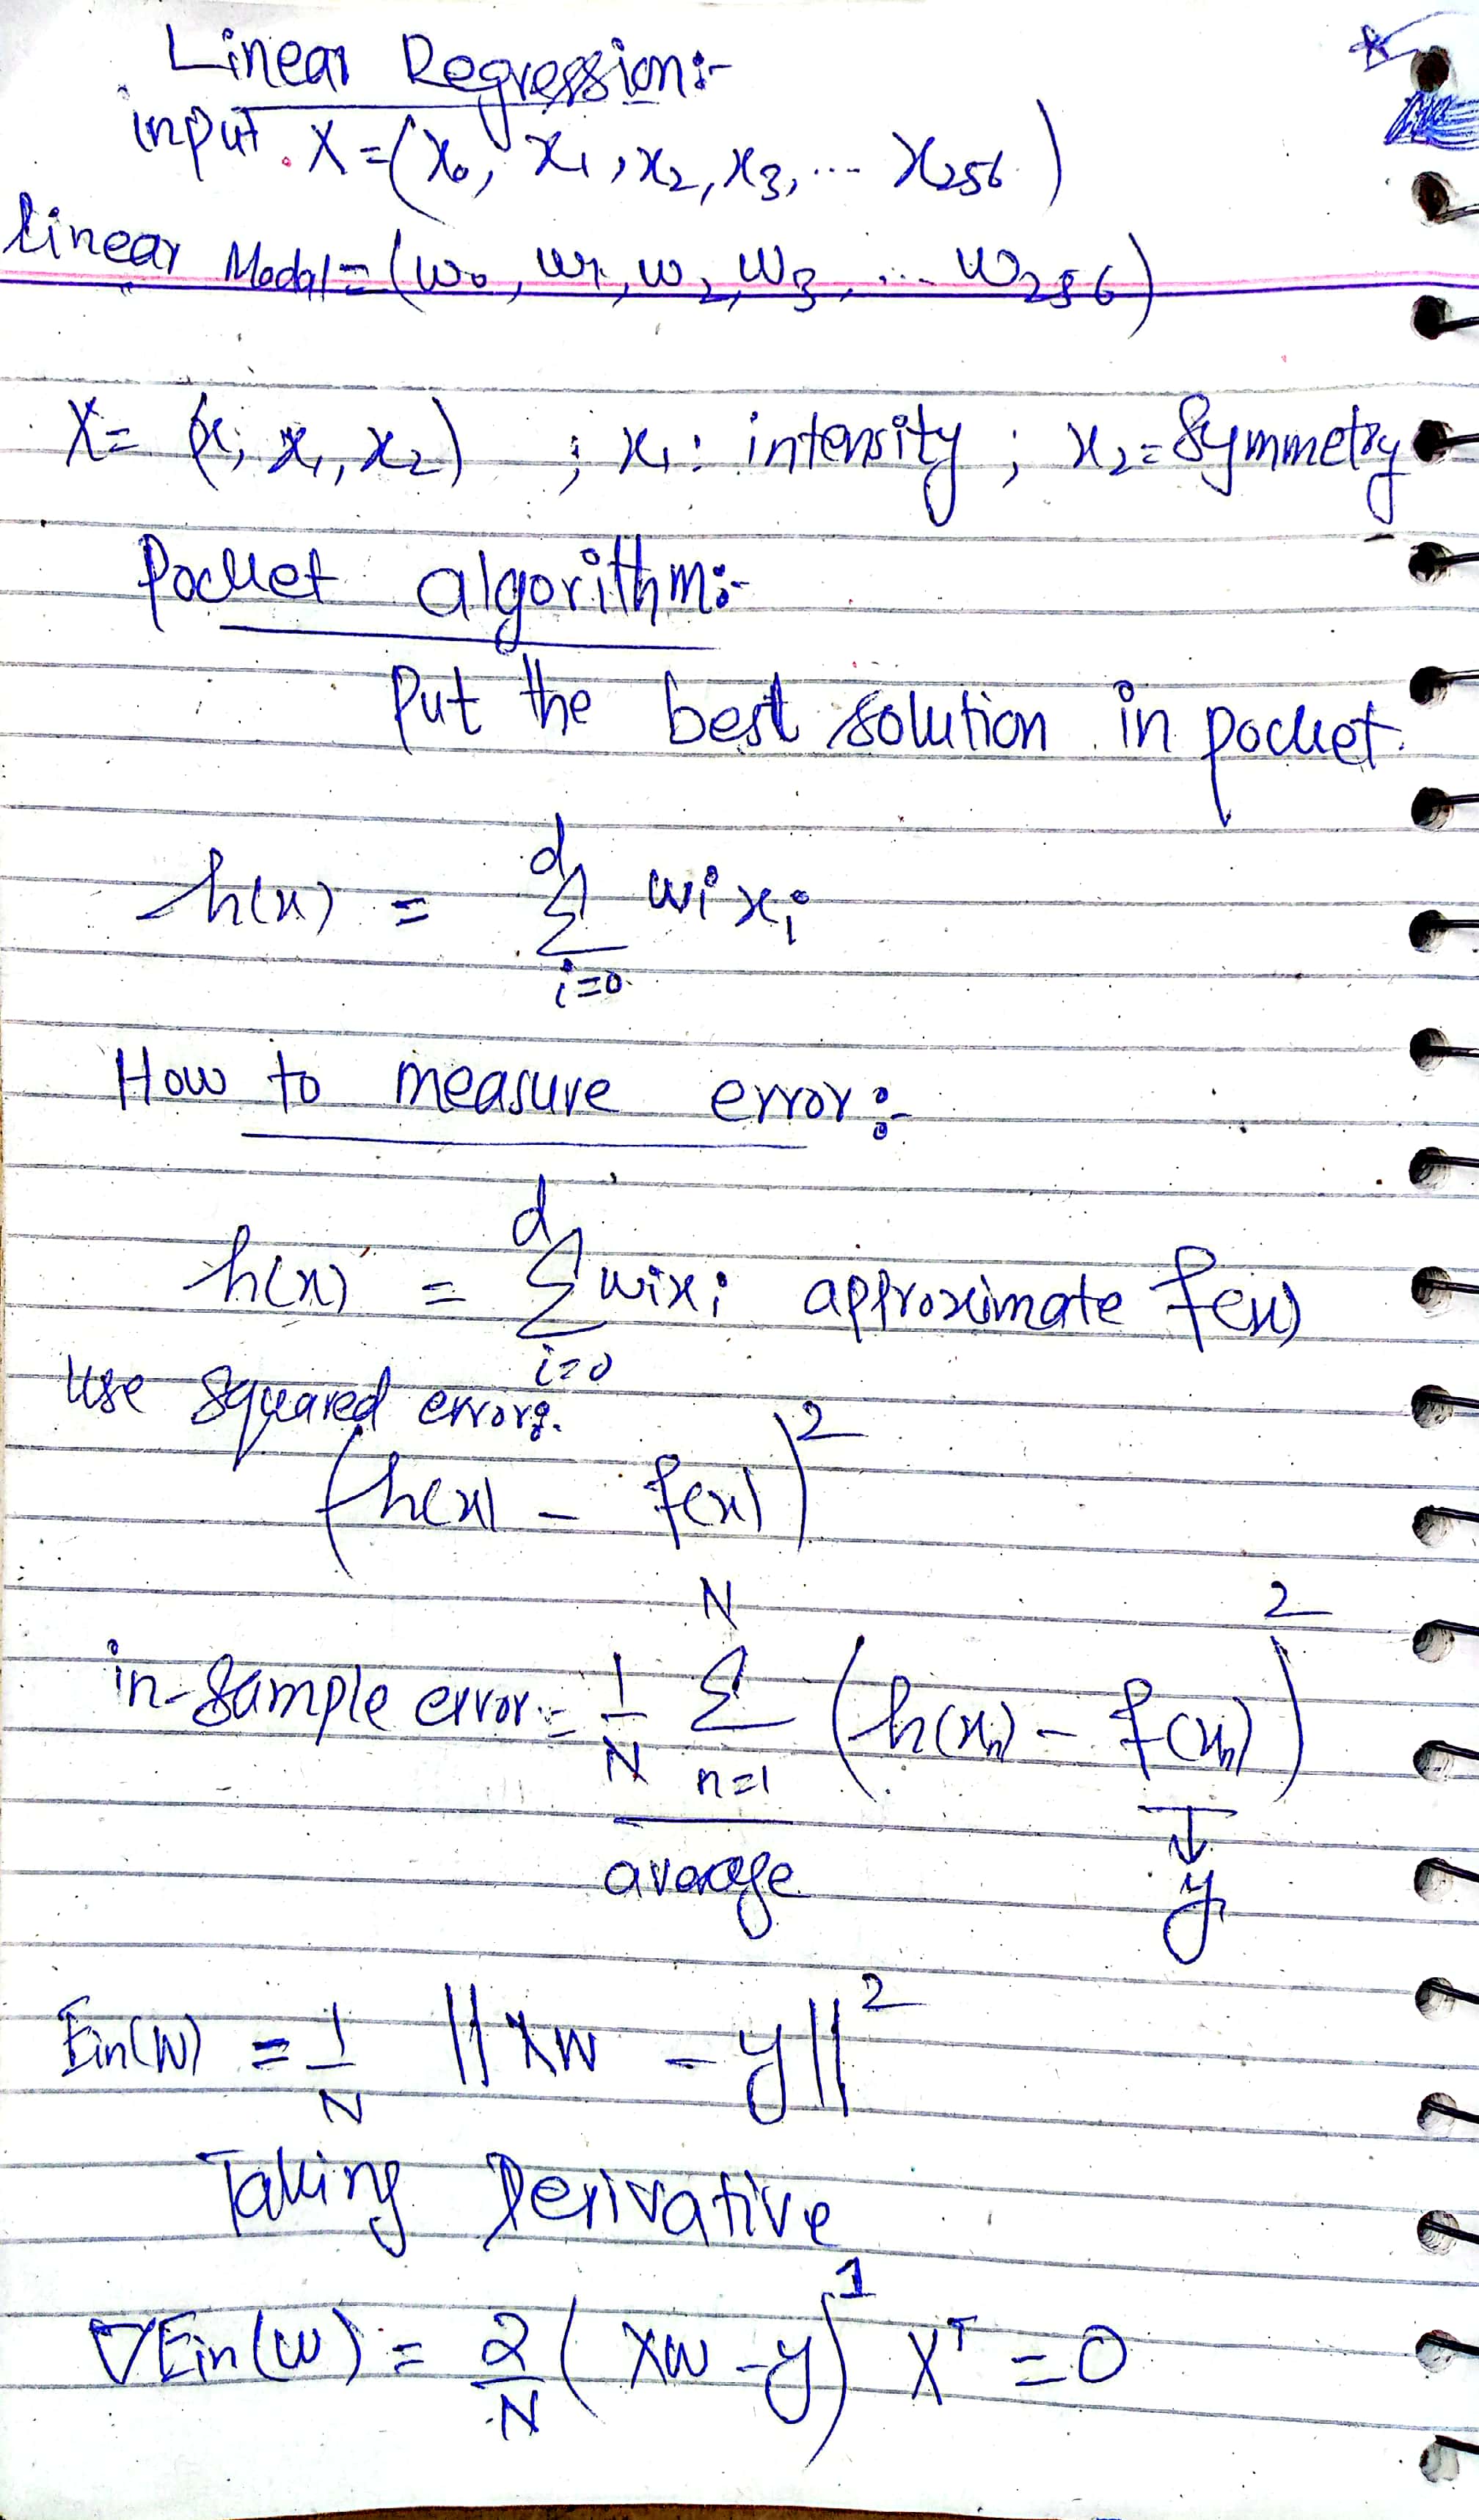 Linear Regression:-
input. X = (x₀, x₁, x₂, x₃, ... x₂₅₆)
linear Modal = (w₀, w₁, w₂, w₃, ... w₂₅₆)
X = (x, x₁, x₂) ; x₁: intensity ; x₂ = Symmetry
Pocket algorithm:-
Put the best solution in pocket.
h(x) = d Σ i=0 wi xi
How to measure error:-
h(x) = d Σ i=0 wi xi approximate f(x)
use squared error:.
(h(x) - f(x))²
in-sample error = 1/N N Σ n=1 (h(xₙ) - f(xₙ))²
average ↓
y
Ein(W) = 1/N ||XW - y||²
Taking Derivative
∇Ein(w) = 2/N (XW - y)¹ Xᵀ = 0